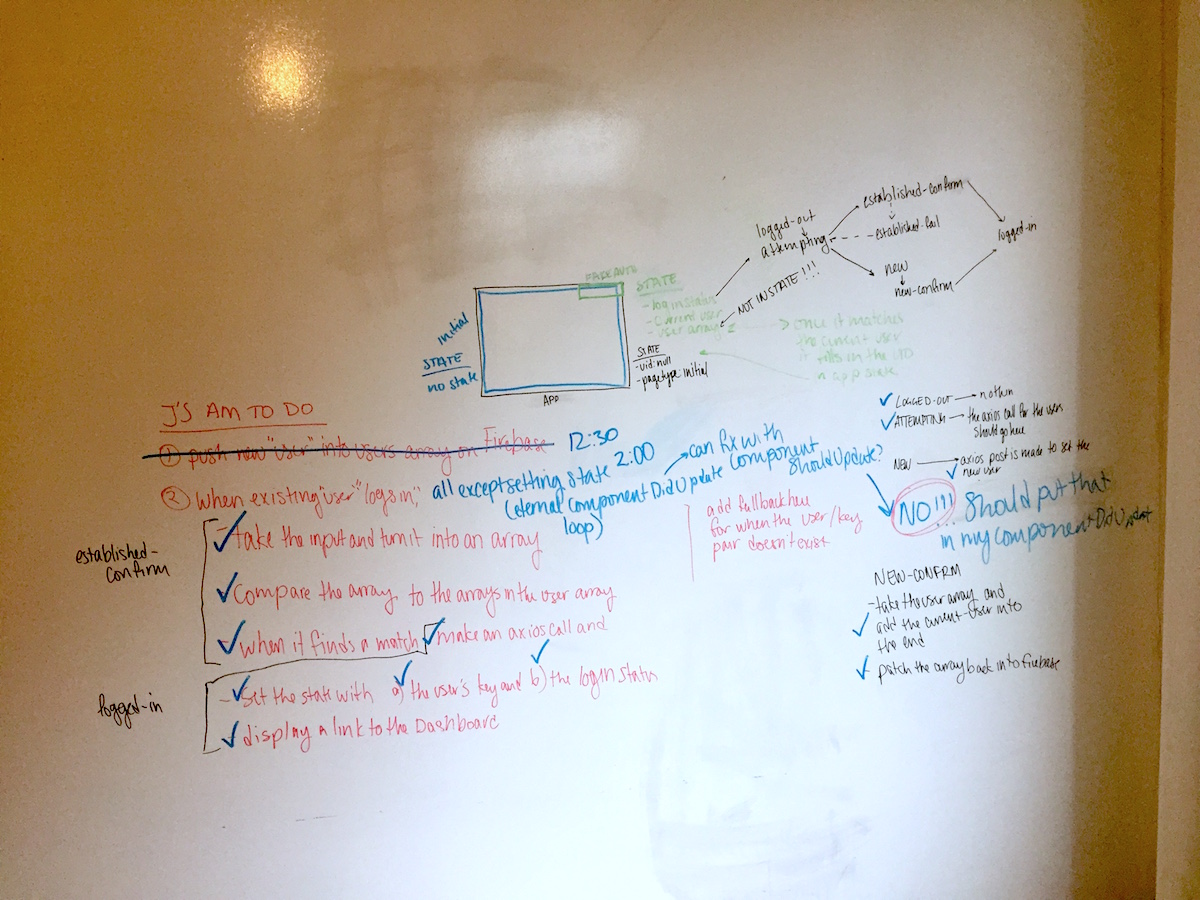 established-confirm
logged-out
attempting
established-fail
logged-in
new
new-confirm
NOT IN STATE!!!
STATE
- log in status
- current user
- user array
> once it matches
the current user
it
in app state
initial
STATE
no state
STATE
- uid: null
- pagetype: initial
APP
J'S AM TO DO
① push new "user" into users array on Firebase
12:30
② when existing "user" "logs in,"
all except setting state 2:00
(eternal componentDidUpdate
loop)
can fix with
component
shouldUpdate?
established-
confirm
- take the input and turn it into an array
- compare the array to the arrays in the user array
- when it finds a match make an axios call and
logged-in
- set the state with a) the user's key and b) the login status
- display a link to the Dashboard
add fallback here
for when the user/key
pair doesn't exist
LOGGED-OUT
ATTEMPTING the axios call for the users
should go here
NEW axios post is made to set the
new user
NO!!!
... should put that
in my componentDidUpdate
NEW-CONFIRM
- take the user array and
add the current-user into
the end
- patch the array back into firebase